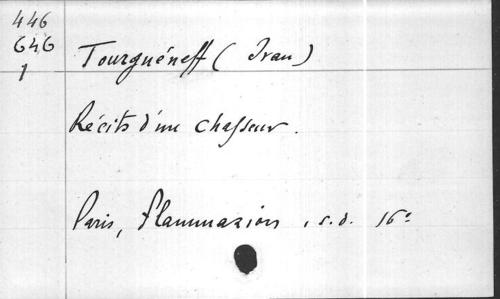 446
646
1
Tourguéneff (Ivan)
Récits d'un chasseur.
Paris, Flammarion, s.d. 16°